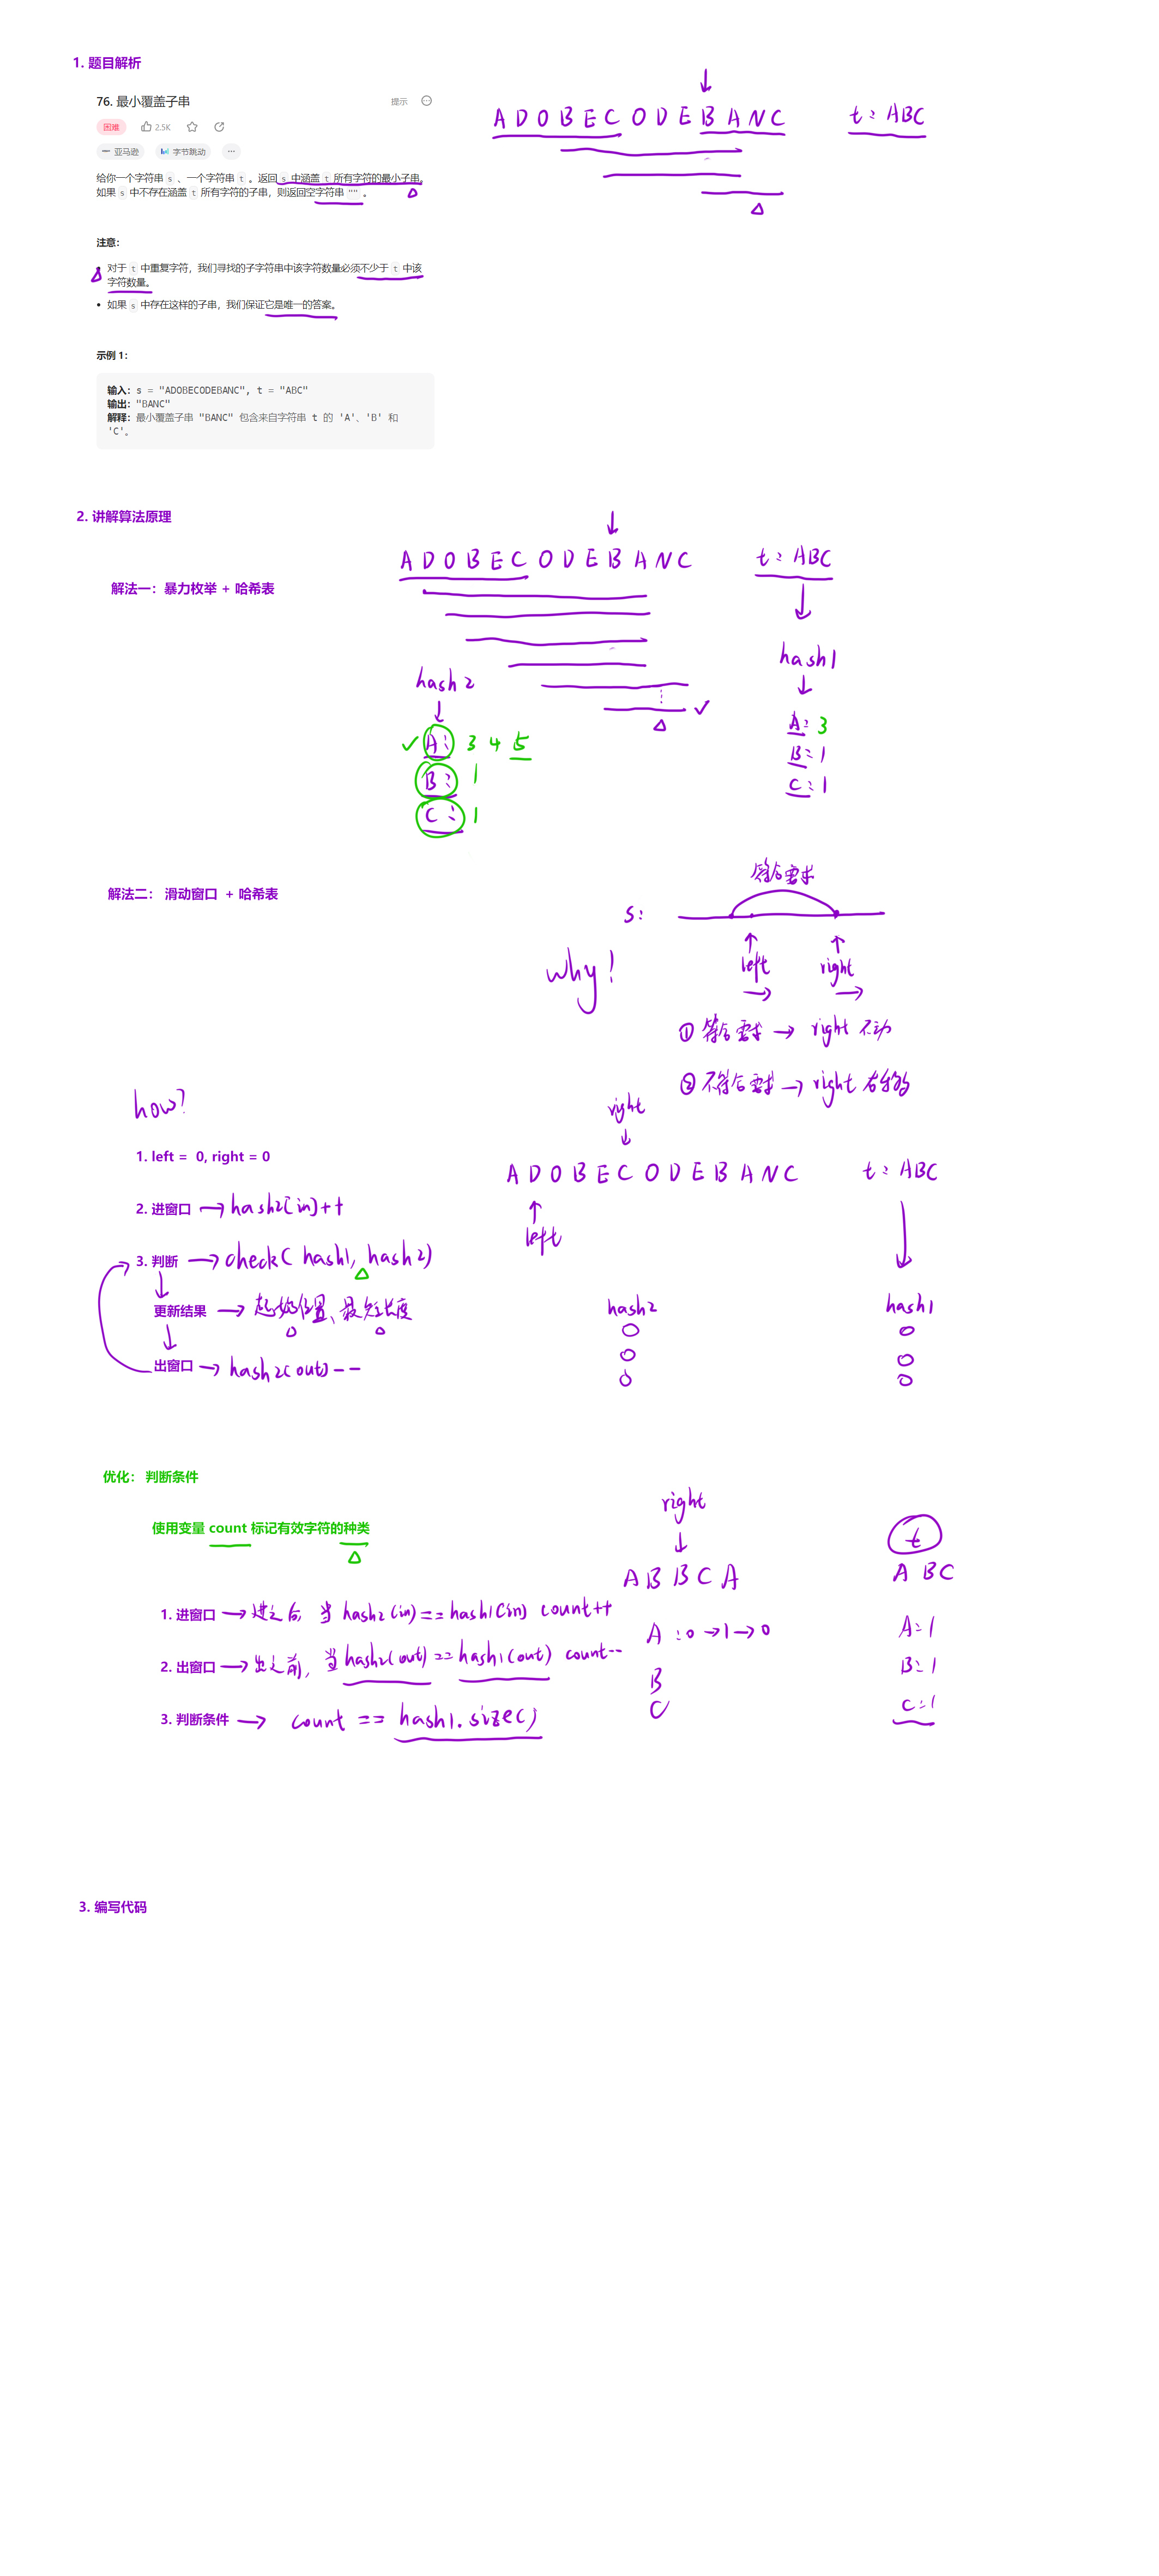 1. 题目解析
76. 最小覆盖子串
提示
困难 2.5K
亚马逊 字节跳动 ...
给你一个字符串 s 、一个字符串 t 。返回 s 中涵盖 t 所有字符的最小子串。
如果 s 中不存在涵盖 t 所有字符的子串，则返回空字符串 "" 。
注意：
对于 t 中重复字符，我们寻找的子字符串中该字符数量必须不少于 t 中该
字符数量。
如果 s 中存在这样的子串，我们保证它是唯一的答案。
示例 1：
输入：s = "ADOBECODEBANC", t = "ABC"
输出："BANC"
解释：最小覆盖子串 "BANC" 包含来自字符串 t 的 'A'、'B' 和
'C'。
A D O B E C O D E B A N C
t: ABC
2. 讲解算法原理
解法一：暴力枚举 + 哈希表
A D O B E C O D E B A N C
t: ABC
hash2
A: 3 4 5
B: 1
C: 1
hash1
A: 3
B: 1
C: 1
解法二： 滑动窗口 + 哈希表
符合要求
s:
left
right
why?
① 符合要求 → right 不动
② 不符合要求 → right 右移
how?
1. left = 0, right = 0
2. 进窗口 → hash2[in]++
3. 判断 → check(hash1, hash2)
更新结果 → 起始位置、最短长度
出窗口 → hash2[out]--
right
A D O B E C O D E B A N C
t: ABC
left
hash2
hash1
优化： 判断条件
使用变量 count 标记有效字符的种类
1. 进窗口 → 进之后, 当 hash2(in) == hash1(in) count++
2. 出窗口 → 出之前, 当 hash2(out) == hash1(out) count--
3. 判断条件 → count == hash1.size()
right
A B B C A
A :0→1→0
B
C
t
A B C
A=1
B=1
C=1
3. 编写代码